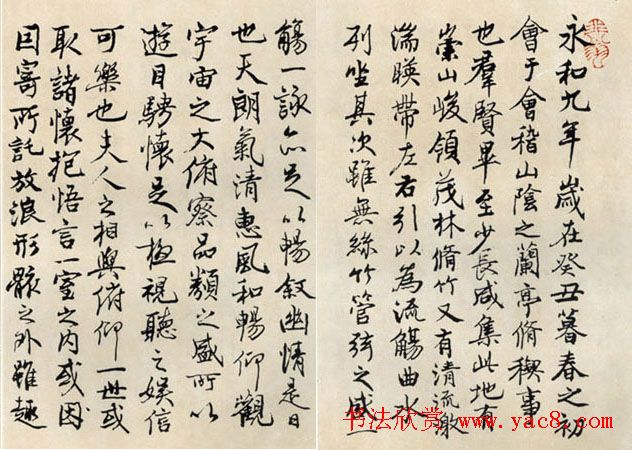 永和九年歲在癸丑暮春之初
會于會稽山陰之蘭亭脩稧事
也羣賢畢至少長咸集此地有
崇山峻領茂林脩竹又有清流激
湍暎帶左右引以為流觴曲水
列坐其次雖無絲竹管弦之盛一
觴一詠亦足以暢叙幽情是日
也天朗氣清惠風和暢仰觀
宇宙之大俯察品類之盛所以
遊目騁懷足以極視聽之娛信
可樂也夫人之相與俯仰一世或
取諸懷抱悟言一室之内或因
因寄所託放浪形骸之外雖趣
书法欣赏 www.yac8.com